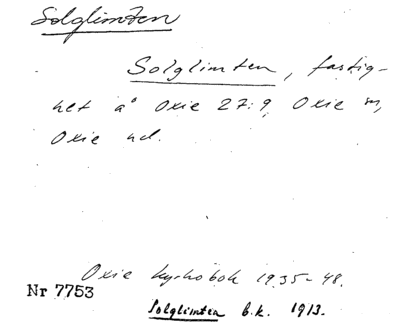 Solglimten
Solglimten, fastig-
het å Oxie 27:9, Oxie sn,
Oxie hd.
Oxie kyrkobok 1935-48.
Nr 7753
Solglimten b.k. 1913.